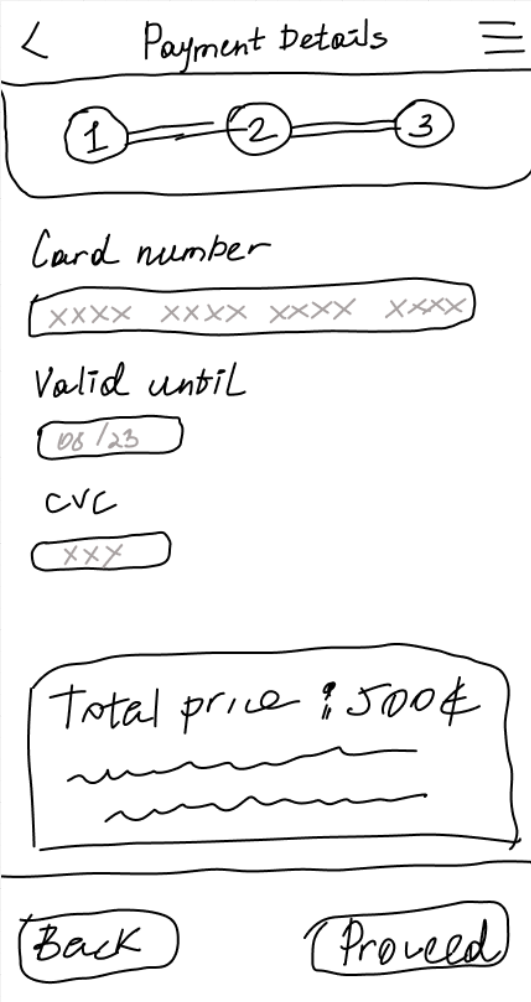 < Payment Details
1 2 3
Card number
XXXX XXXX XXXX XXXX
Valid until
08/23
CVC
XXX
Total price : 500€
Back Proceed